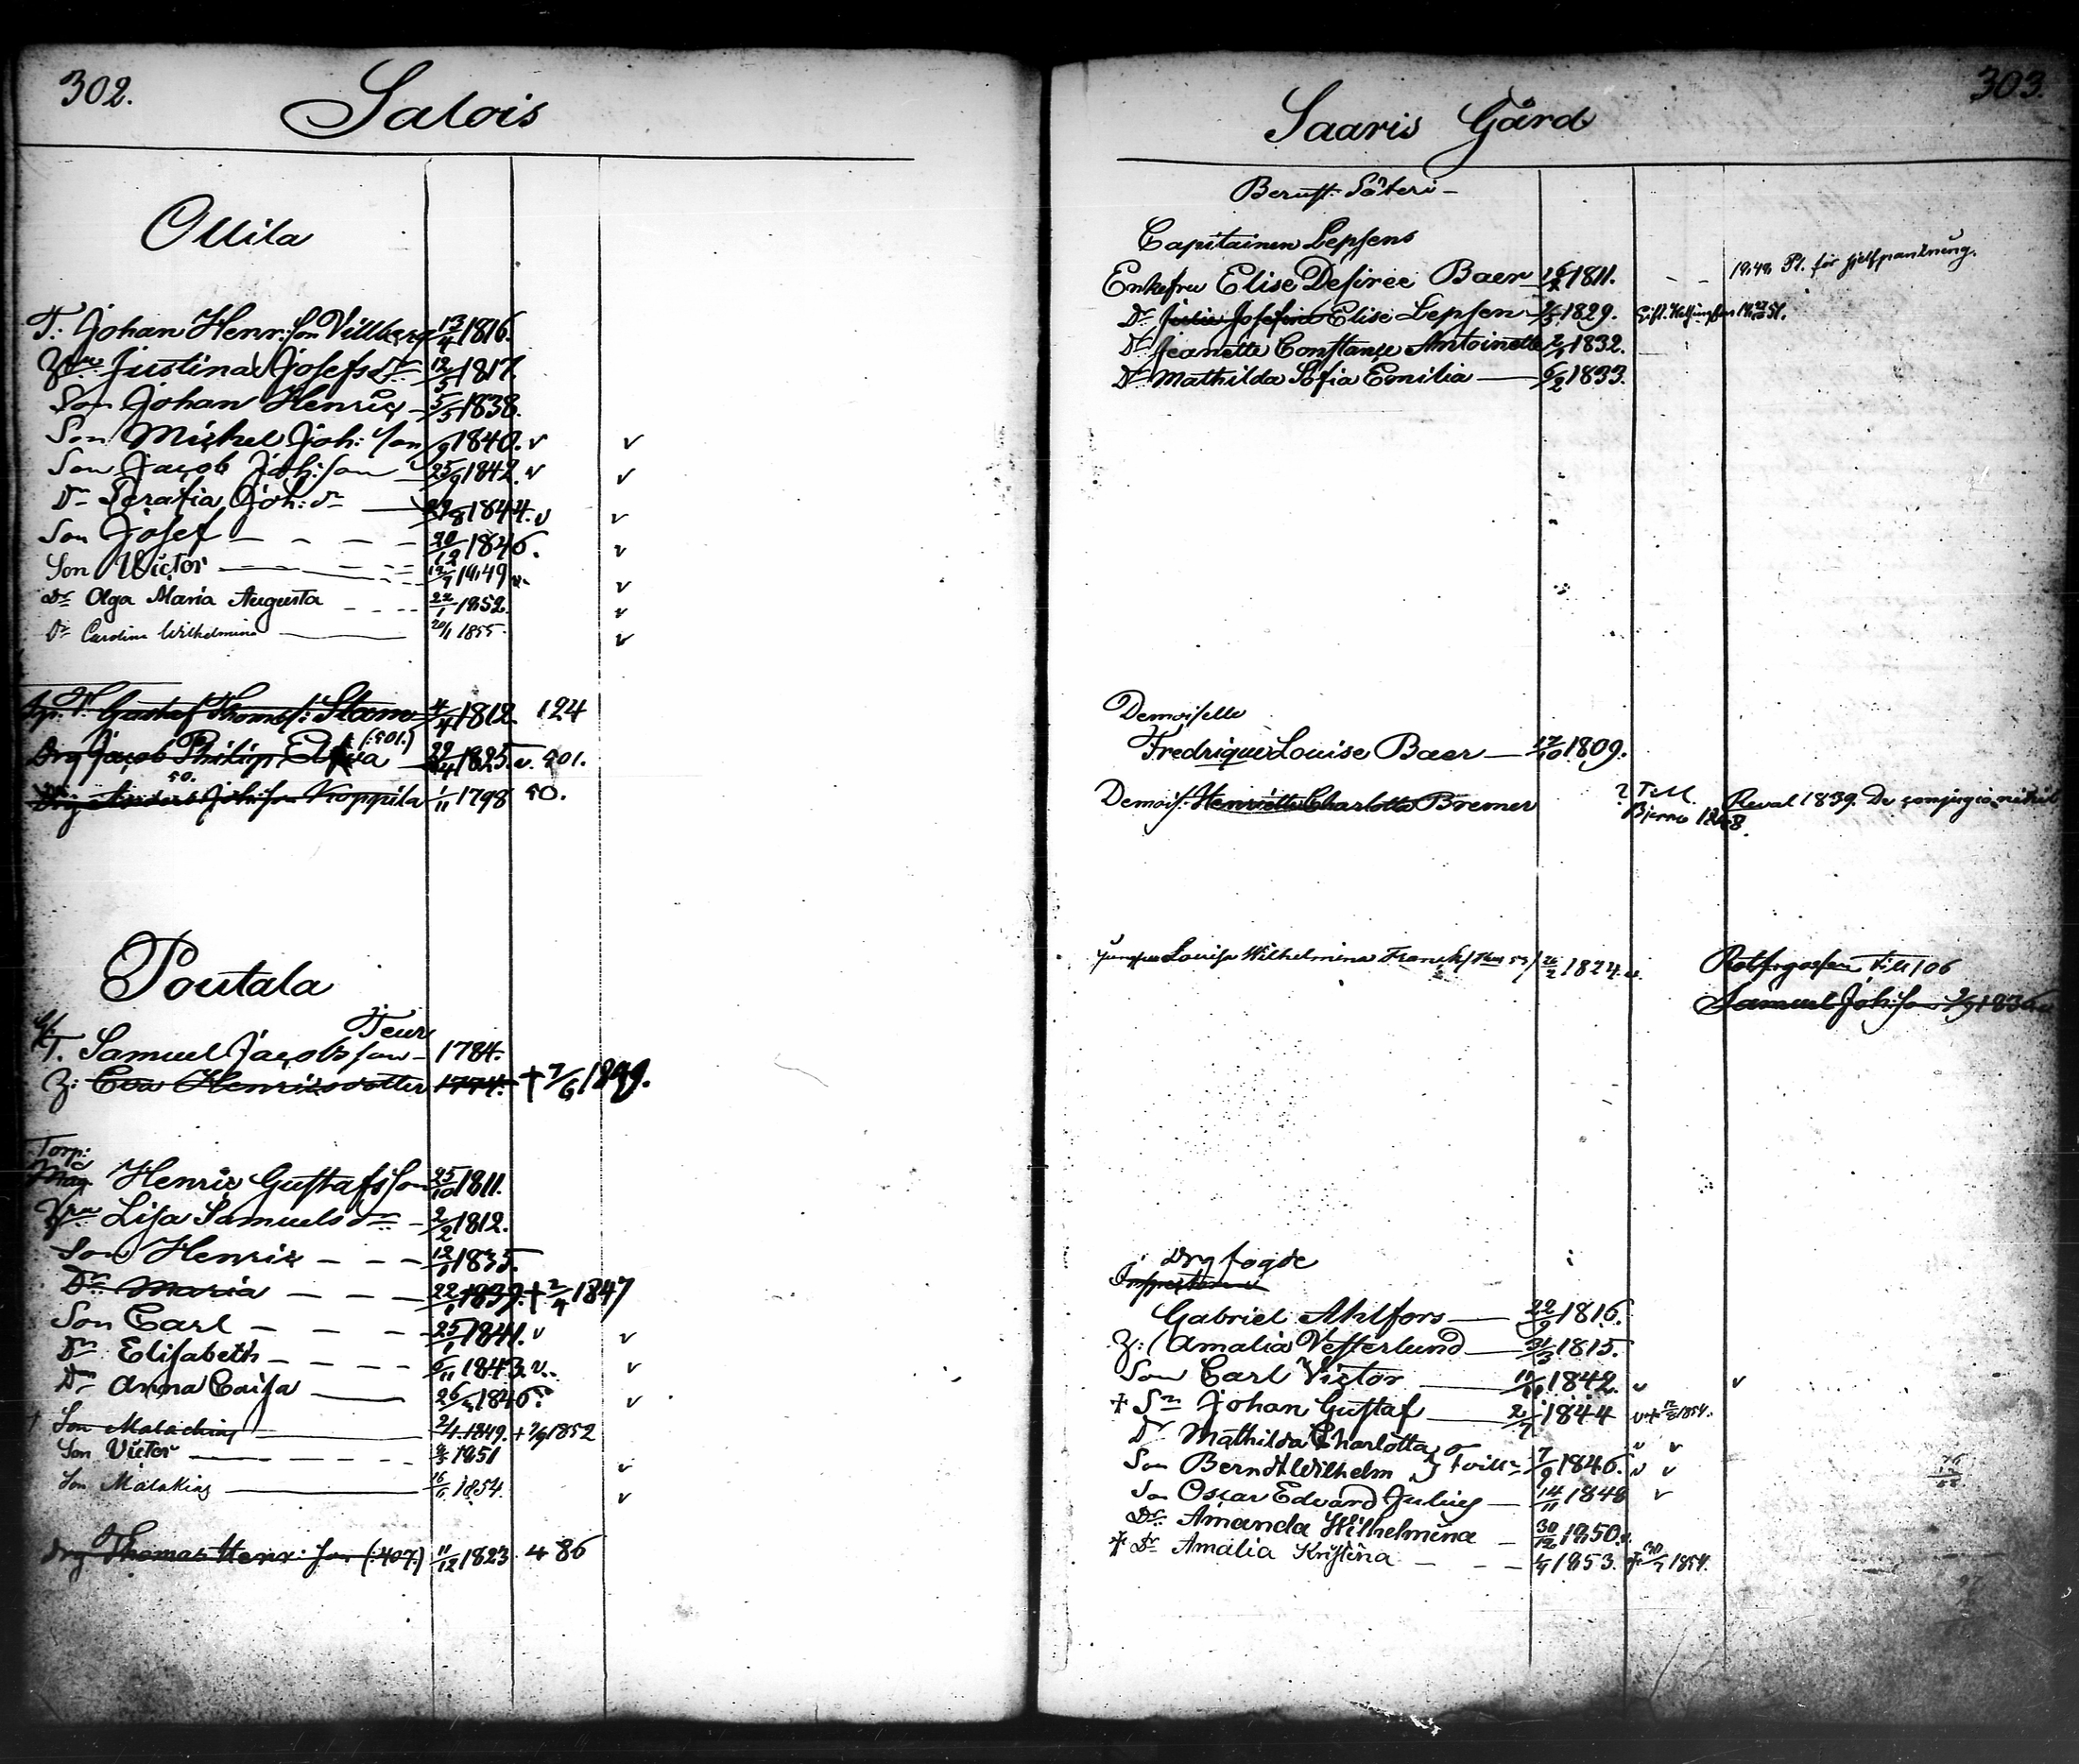 302.
Salois
Ollila
T. Johan Henr: Son Villberg 13/4 1816.
Justina Josefs Dr 12/5 1817.
Son Johan Henric 5/5 1838.
Son Michel Joh: Son /9 1840. v v
Son Jacob Joh: Son 25/9 1842. v v
Dr Serafia Joh: Dr 29/8 1844. v v
Son Josef 20/12 1846. v
Son Victor 12/7 1849 v
Dr Olga Maria Augusta 22/1 1852. v
Dr Carolina Wilhelmina 20/1 1855. v
T. Gustaf Thomas S: 4/4 1812 124
(:501.)
Drg Jacob Philip 29/4 1825. v. 501.
50.
Drg Anders Joh: Son Koppila 1/11 1798 50.
Poutala
Teur
T. Samuel Jacobsson 1784.
Eva Henricsdotter 1774. † 7/6 1849.
Torp:
Måg Henric Gustafsson 25/10 1811.
Lisa Samuels Dr 2/2 1812.
Son Henric 12/1 1835.
Dr Maria 22/1 1839. † 2/4 1847
Son Carl 25/1 1841. v v
Dr Elisabeth 6/11 1843. v. v
Dr Anna Caisa 26/5 1846. v
Son Malachias 2/4 1849. † 7/9 1852
Son Victor 1851 v
Son Malakias 16/6 1854. v
Drg Thomas Henr: Son (:407.) 11/12 1823. 486
303.
Saaris Gård
Berust. Säteri
Capitainen Lepsens
Enkefru Elise Desiree Baer 1811. 1848 Pl. för
Dr Julie Josefina Elise Lepsen 1829. Gift. Helsingfors
Dr Jeanette Constance Antoinette 2/1 1832.
Dr Mathilda Sofia Emilia 6/2 1833.
Demoiselle
Fredrique Louise Baer 17/10 1809.
Demois. Henriette Charlotta Bremer ? Till Reval 1839. De conjugio nihil
Bjerno 1848.
Jungfru Lovisa Wilhelmina Franck 26/2 1824. Till 106
Samuel Joh: Son 2/9 1836
Drg fogde
Inspectoren
Gabriel Ahlfors 22/9 1816.
Amalia Vesterlund 31/3 1815.
Son Carl Victor 1842. v v
† Sn Johan Gustaf 2/7 1844 v † 1854.
Dr Mathilda Charlotta v v
Son Berndt Wilhelm } tvill: 7/9 1846. v v
Son Oscar Edvard Julius 14/11 1848 v
Dr Amanda Wilhelmina 30/12 1850.
† Dr Amalia Kristina 1853. † 30/7 1854.